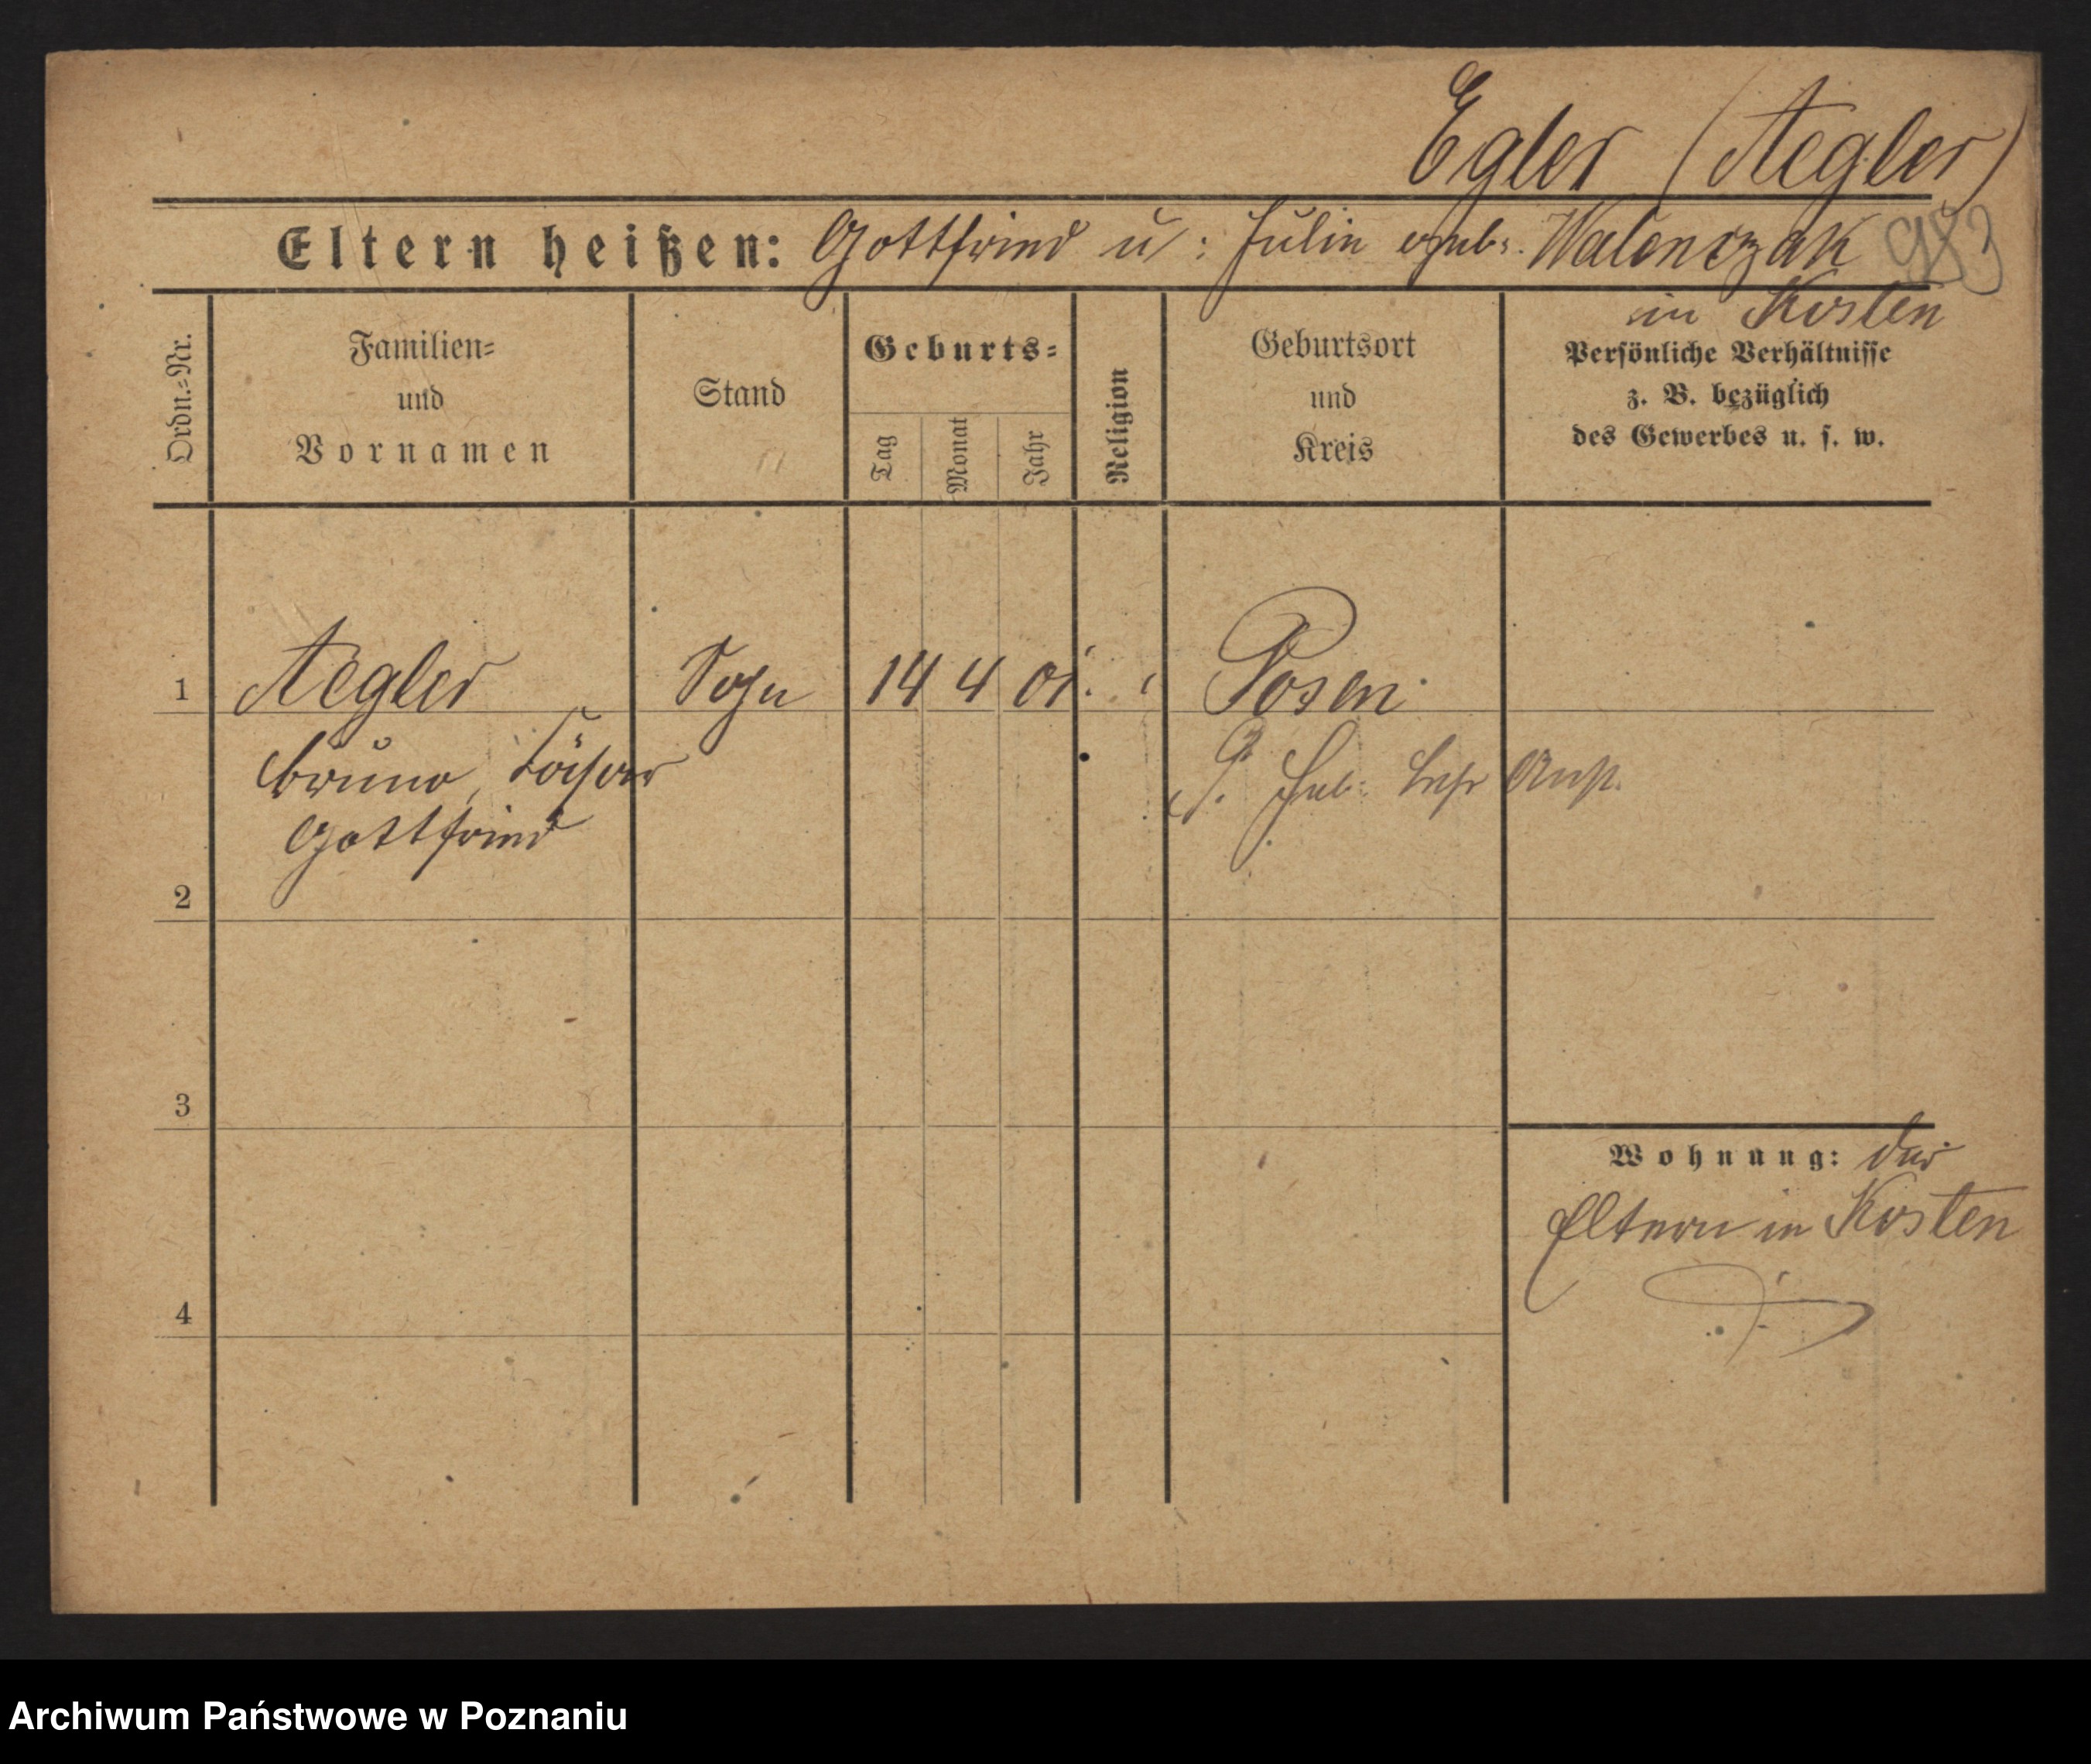 Egler (Aegler)
Eltern heißen: Gottfried u: Julie geb. Walenczak 983
in Kosten
Ordn.=Nr.
Familien=
und
Vornamen
Stand
Geburts=
Tag
Monat
Jahr
Religion
Geburtsort
und
Kreis
Persönliche Verhältnisse
z. B. bezüglich
des Gewerbes u. s. w.
1 Aegler Sohn 14 4 01. Posen
Bruno,
Gottfried
2
3
Wohnung: der
Eltern in Kosten
4
Archiwum Państwowe w Poznaniu